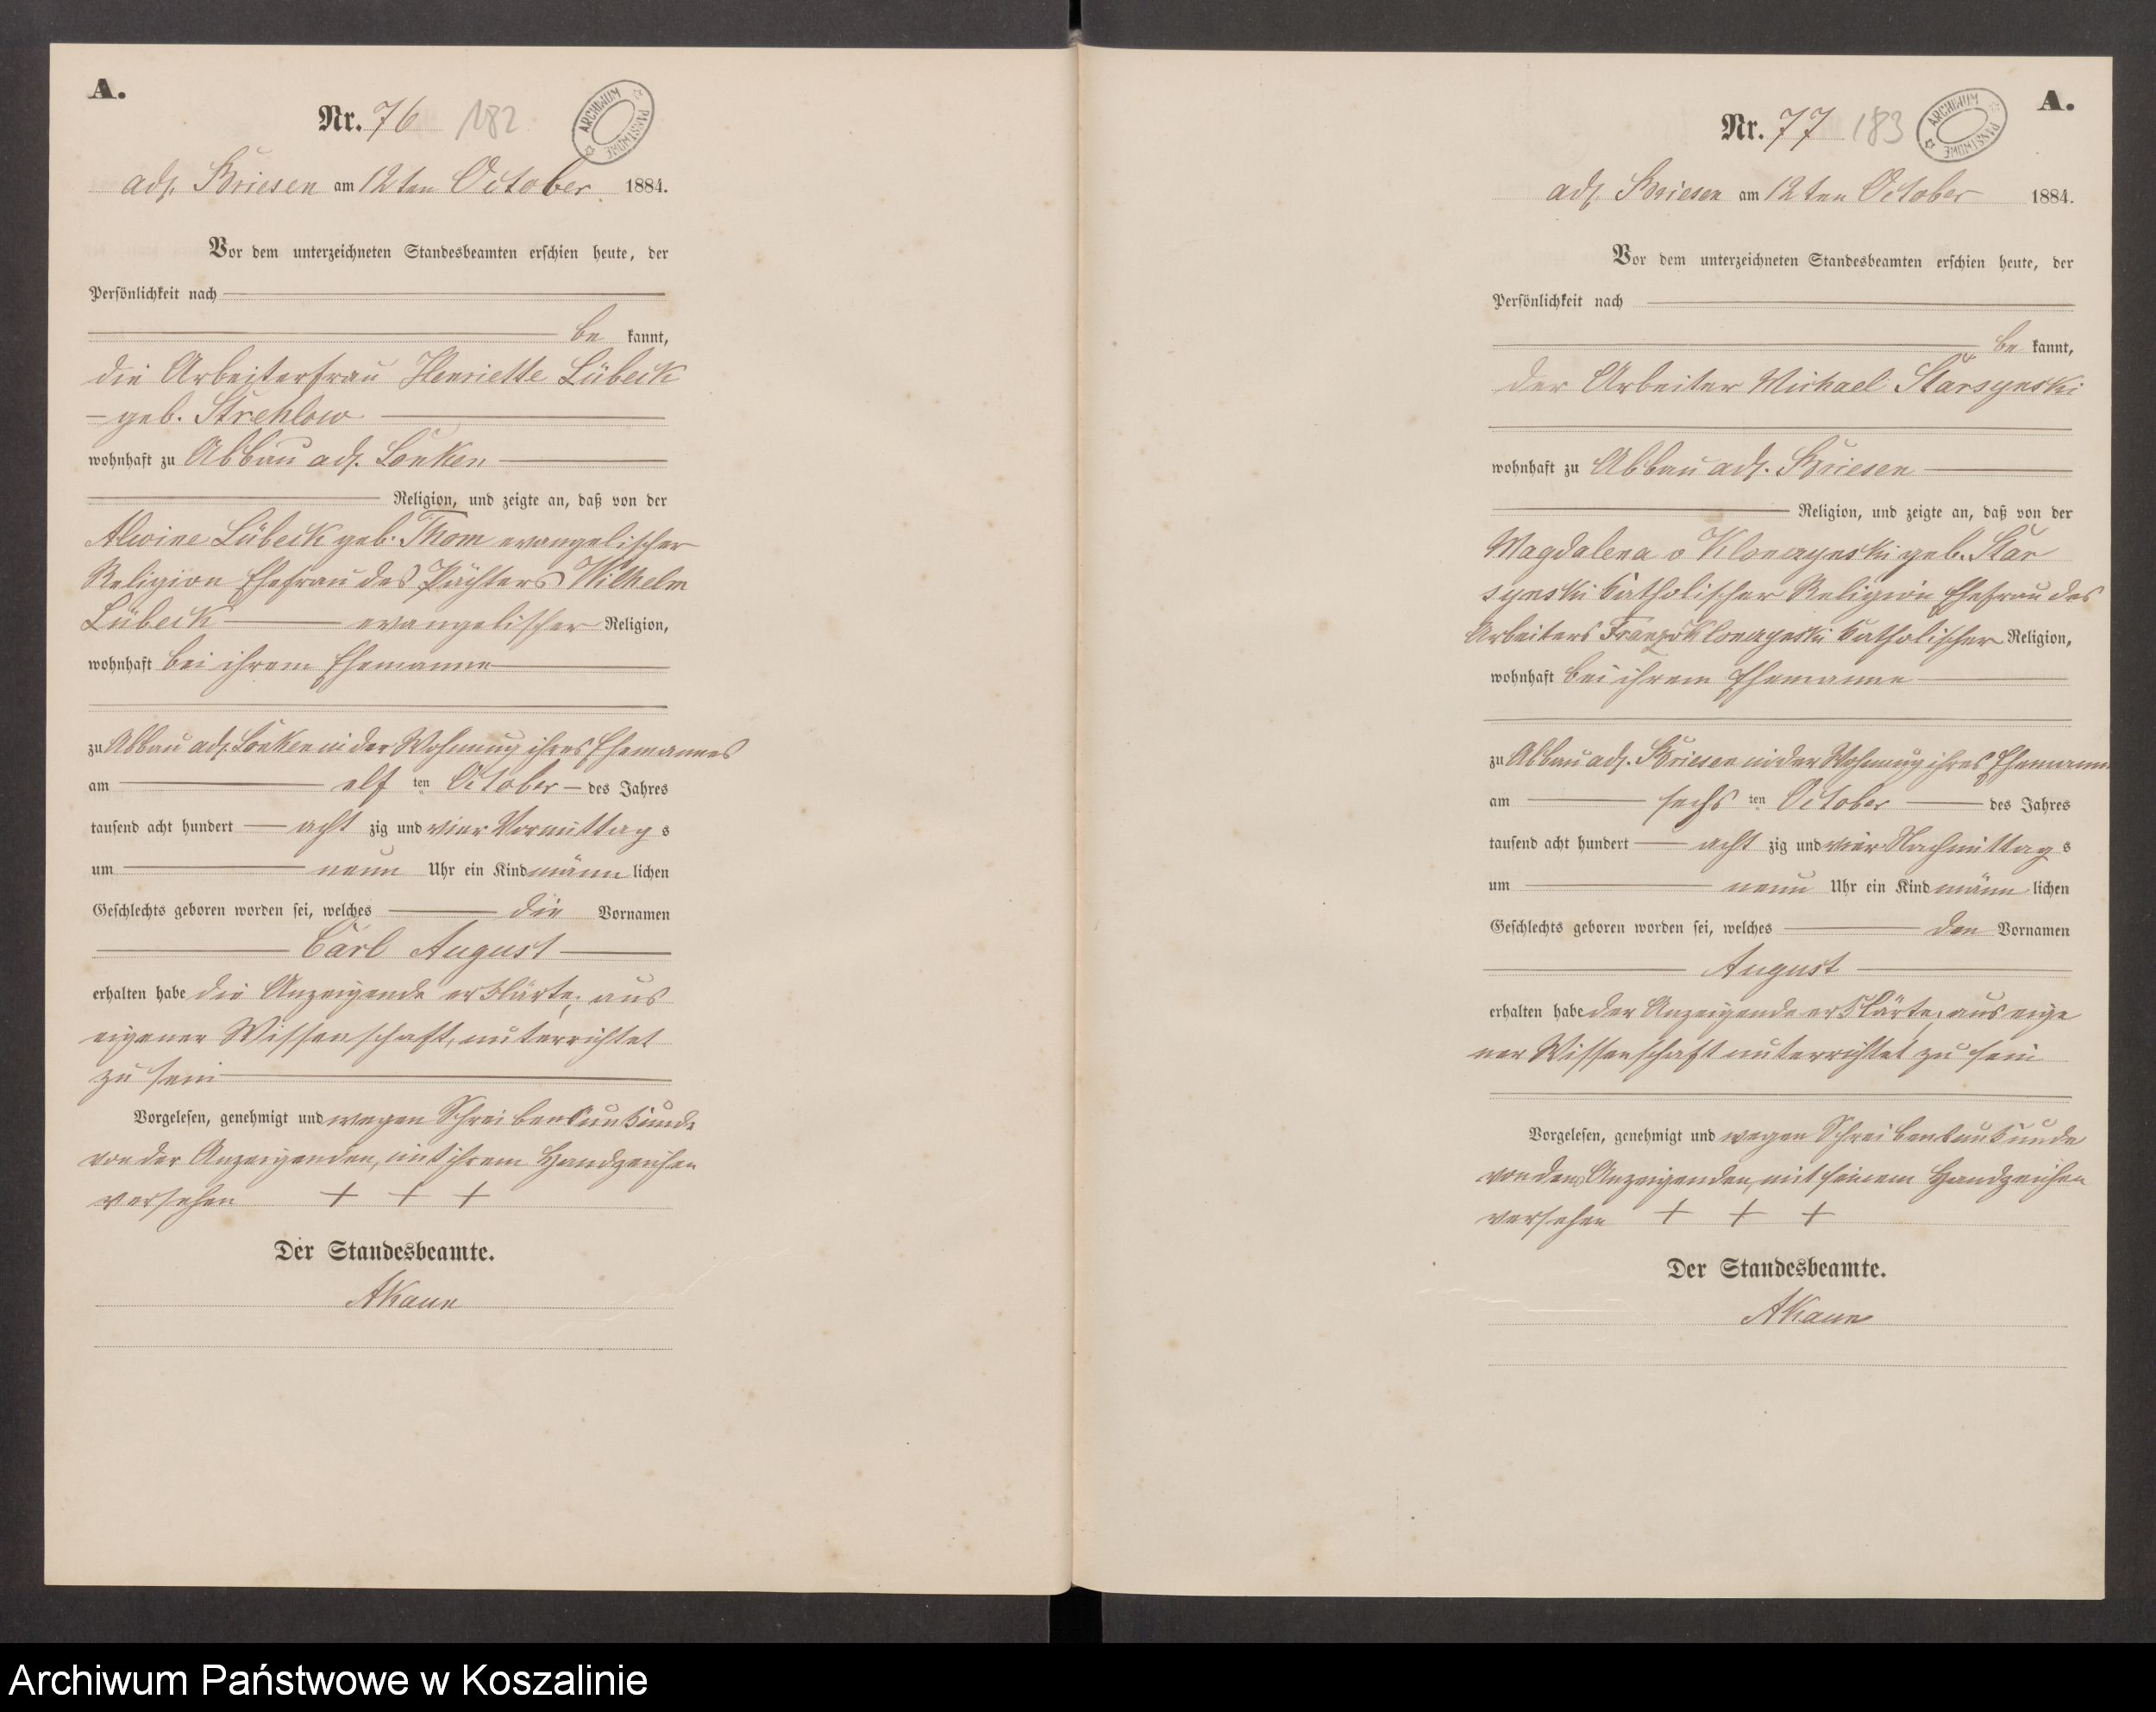 A.
Nr. 76 182
ARCHIWUM PAŃSTWOWE
adl. Briesen am 12ten October 1884.
Vor dem unterzeichneten Standesbeamten erschien heute, der
Persönlichkeit nach
be kannt,
die Arbeiterfrau Henriette Lübeck
geb. Strehlow
wohnhaft zu Abbau adl. Lonken
Religion, und zeigte an, daß von der
Alwine Lübeck geb. Thom evangelischer
Religion Ehefrau des Pächters Wilhelm
Lübeck evangelischer Religion,
wohnhaft bei ihrem Ehemanne
zu Abbau adl. Lonken in der Wohnung ihres Ehemannes
am elf ten October des Jahres
tausend acht hundert acht zig und vier Vormittag s
um neun Uhr ein Kind männ lichen
Geschlechts geboren worden sei, welches die Vornamen
Carl August
erhalten habe die Anzeigende erklärte, aus
eigener Wissenschaft, unterrichtet
zu sein
Vorgelesen, genehmigt und wegen Schreibensunkunde
von der Anzeigenden, mit ihrem Handzeichen
versehen + + +
Der Standesbeamte.
AKaun
A.
Nr. 77 183
ARCHIWUM PAŃSTWOWE
adl. Briesen am 12ten October 1884.
Vor dem unterzeichneten Standesbeamten erschien heute, der
Persönlichkeit nach
be kannt,
der Arbeiter Michael Starsynski
wohnhaft zu Abbau adl. Briesen
Religion, und zeigte an, daß von der
Magdalena v Klonczynski geb. Star
synski katholischer Religion Ehefrau des
Arbeiters Franz v Klonczynski katholischer Religion,
wohnhaft bei ihrem Ehemanne
zu Abbau adl. Briesen in der Wohnung ihres Ehemanne
am sechs ten October des Jahres
tausend acht hundert acht zig und vier Nachmittag s
um neun Uhr ein Kind männ lichen
Geschlechts geboren worden sei, welches den Vornamen
August
erhalten habe der Anzeigende erklärte, aus eige
ner Wissenschaft unterrichtet zu sein
Vorgelesen, genehmigt und wegen Schreibensunkunde
von dem Anzeigenden, mit seinem Handzeichen
versehen + + +
Der Standesbeamte.
AKaun
Archiwum Państwowe w Koszalinie